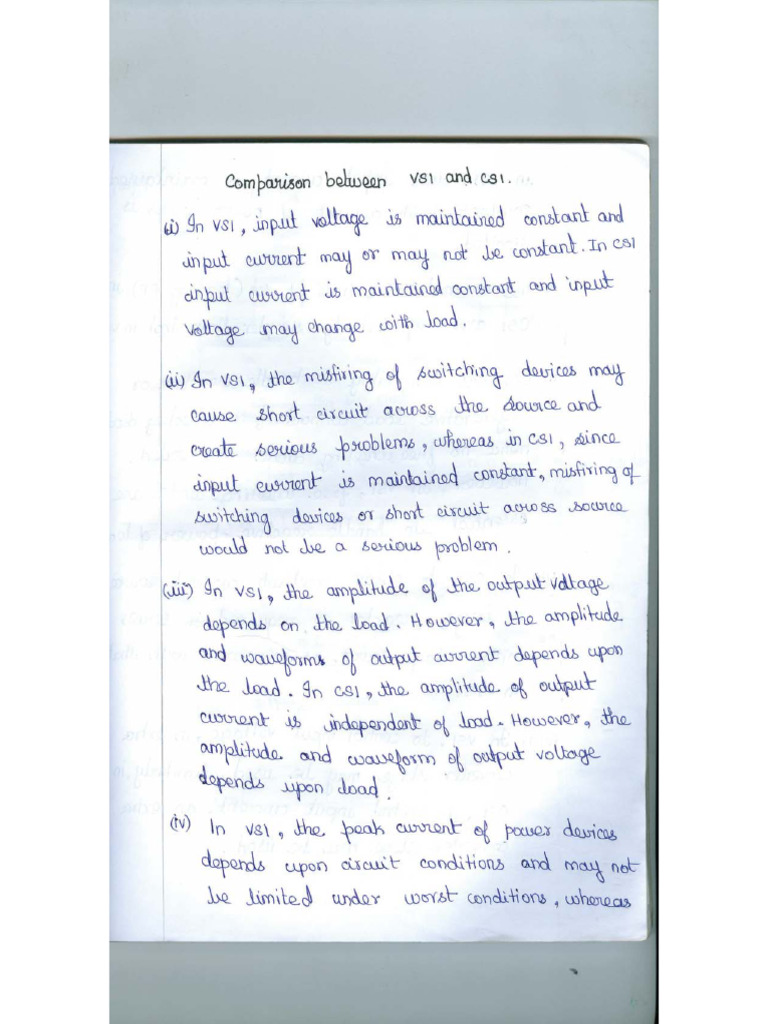 Comparison between VSI and CSI.
(i) In VSI, input voltage is maintained constant and
input current may or may not be constant. In CSI
input current is maintained constant and input
voltage may change with load.
(ii) In VSI, the misfiring of switching devices may
cause short circuit across the source and
create serious problems, whereas in CSI, since
input current is maintained constant, misfiring of
switching devices or short circuit across source
would not be a serious problem.
(iii) In VSI, the amplitude of the output voltage
depends on the load. However, the amplitude
and waveforms of output current depends upon
the load. In CSI, the amplitude of output
current is independent of load. However, the
amplitude and waveform of output voltage
depends upon load.
(iv) In VSI, the peak current of power devices
depends upon circuit conditions and may not
be limited under worst conditions, whereas